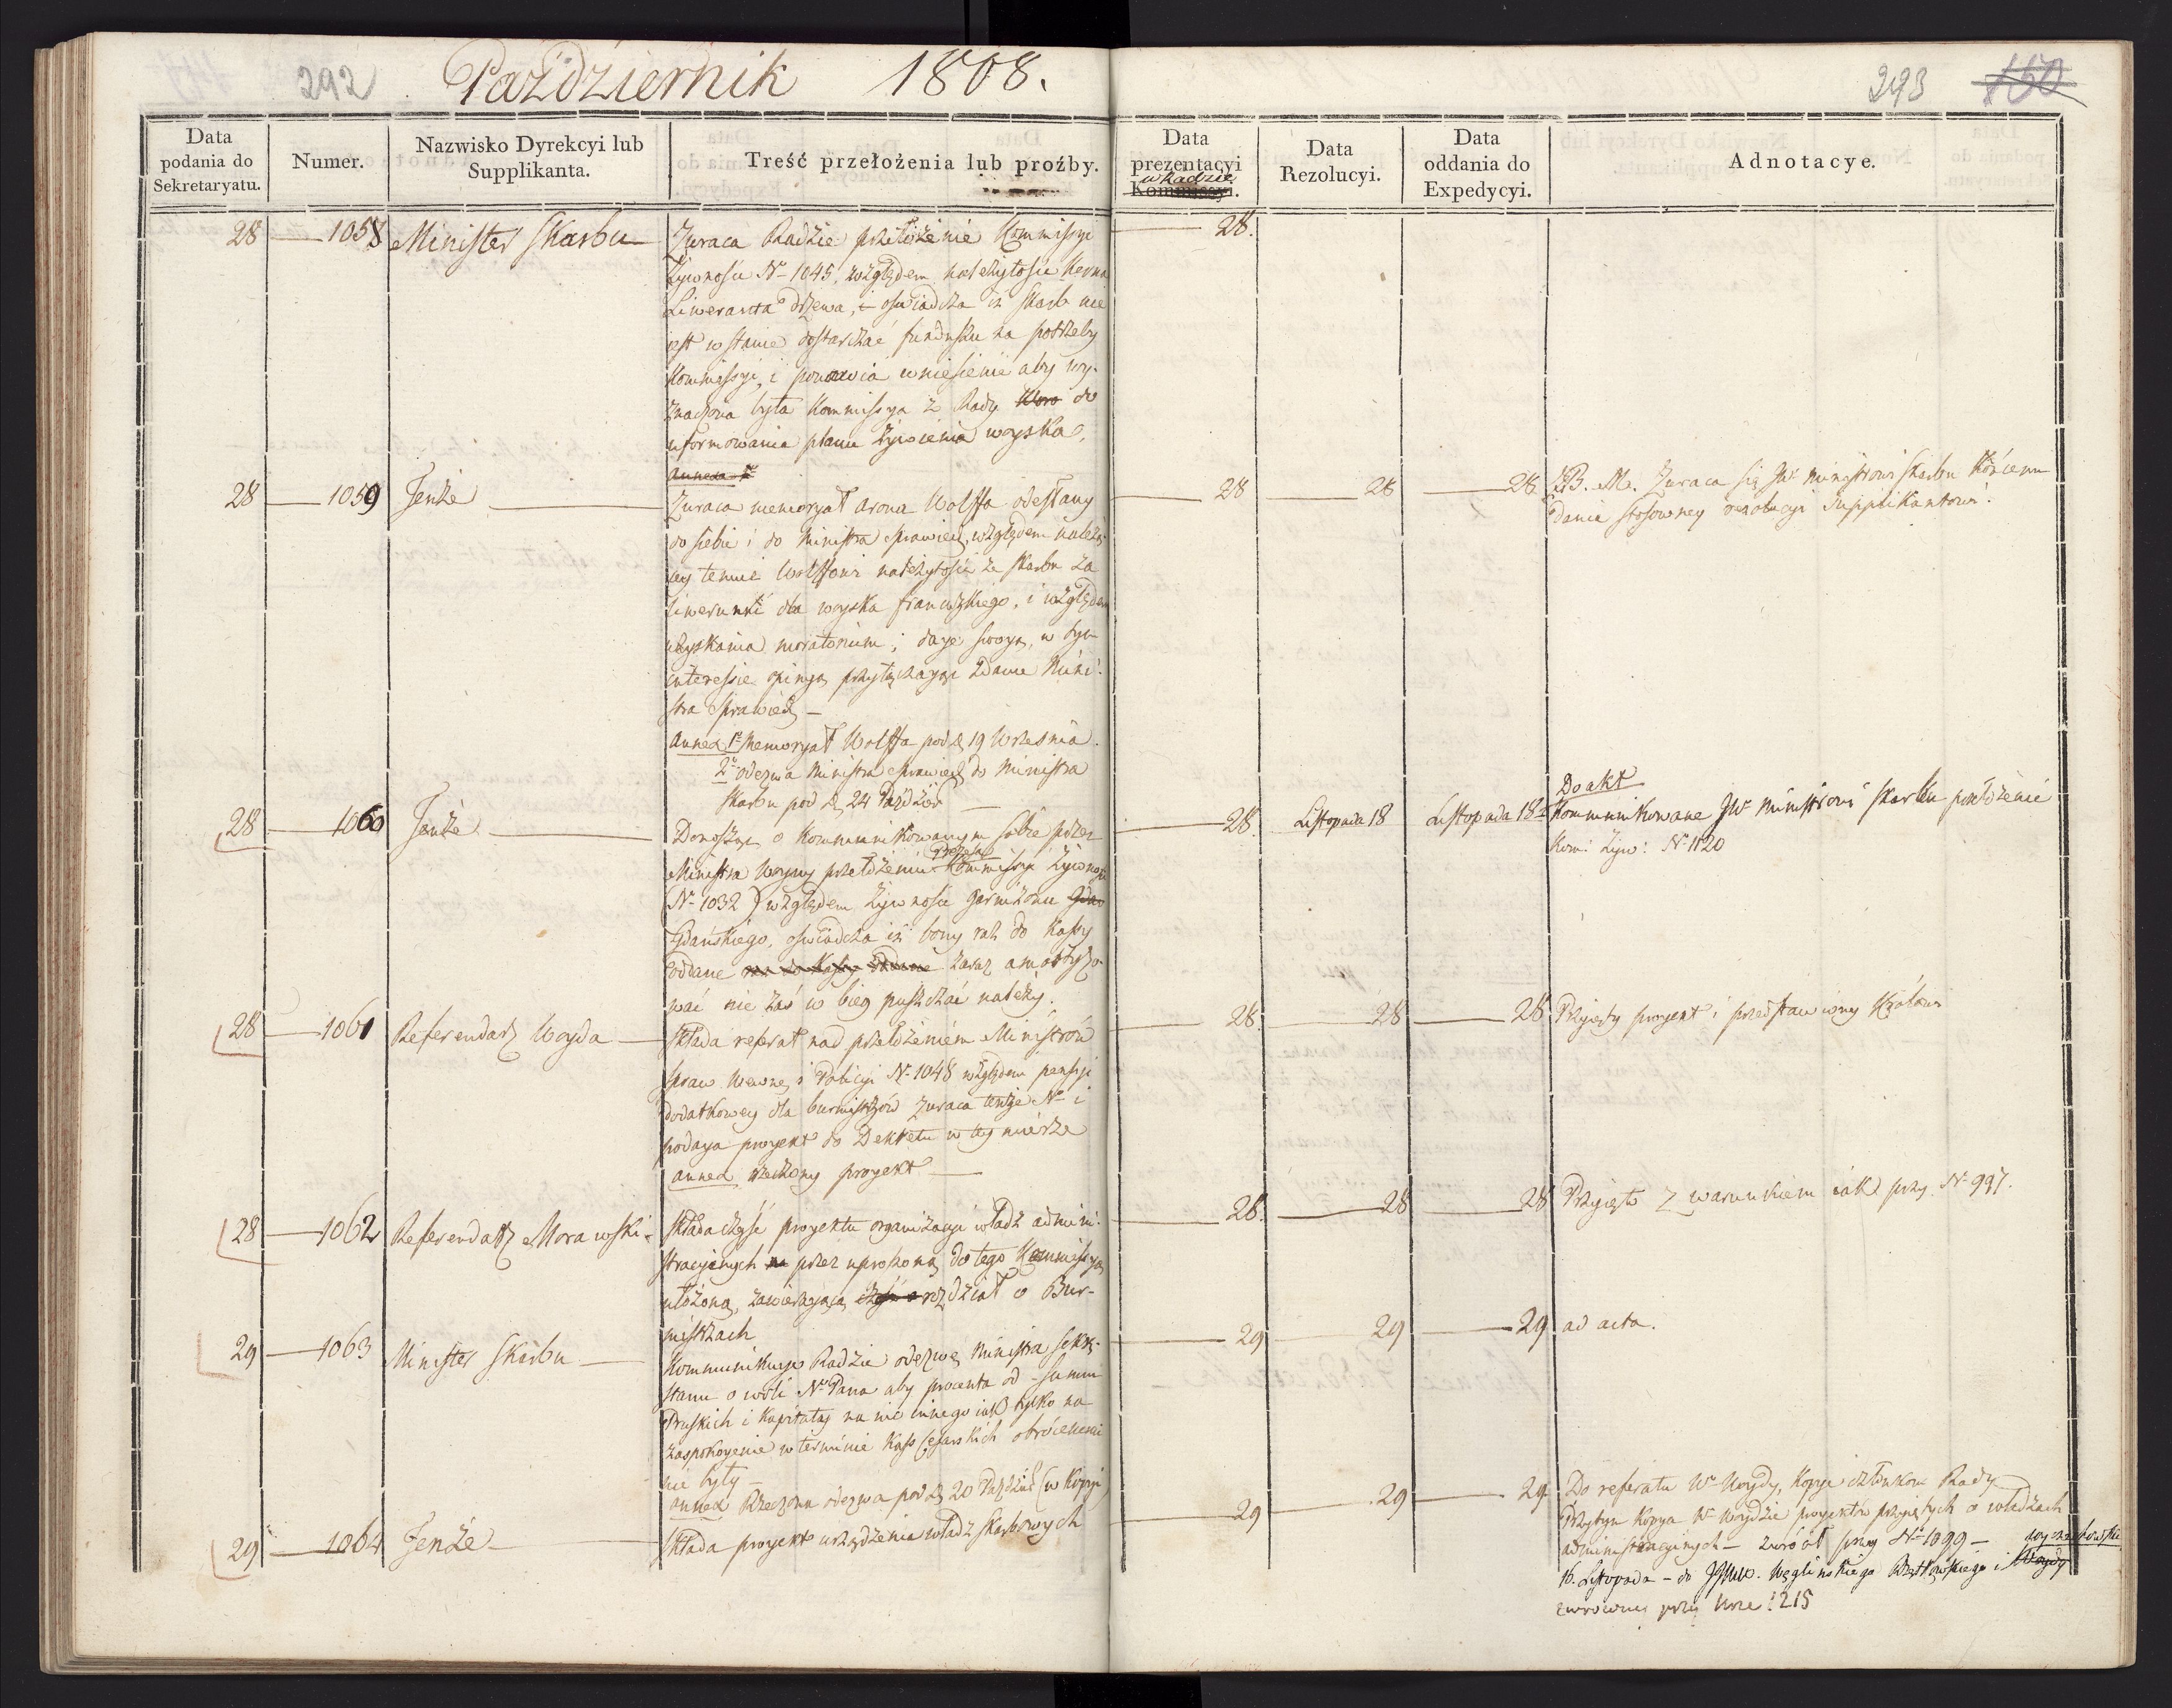 292 Październik 1808.
293 150
Data podania do Sekretaryatu.
Numer.
Nazwisko Dyrekcyi lub Supplikanta.
Treść przełożenia lub proźby.
Data prezentacyi w Radzie Kommissyi.
Data Rezolucyi.
Data oddania do Expedycyi.
Adnotacye.
28 1058 Minister Skarbu
Zwraca Radzie przełożenie Kommissyi
Żywności No 1045. względem należytości
Liweranta drzewa, i oświadcza iż Skarb nie
iest w stanie dostarczać funduszu na potrzeby
Kommissyi, i ponawia wniesienie aby wy-
znaczona była Kommissya z Rady do
uformowania planu żywienia woyska.
28.
28 1059 Tenże
Zwraca memoryał Arona Wolffa odesłany
do siebie i do Ministra Sprawied. względem należą-
cey temuż Wolffowi należytości ze Skarbu za
liwerunki dla woyska francuzkiego, i względem
uzyskania moratorium; daje swoyą w tym
interessie opinyą przyłączając zdanie Mini-
stra Sprawied. —
Annex 1o Memoryał Wolffa pod d. 19 Września.
2o odezwa Ministra Sprawied. do Ministra
Skarbu pod d. 24 Paździer
28 28 28
K.B. M. Zwraca się JW Ministrowi Skarbu końcem
dania stosowney rezolucyi Supplikantowi.
28 1060 Tenże
Donosząc o kommunikowanym sobie przez
Ministra Woyny przełożeniu Prezesa Kommissyi Żywności
(No 1032) względem żywności garnizonu
Gdańskiego, oświadcza iż bony raz do kassy
oddane zaraz amortyzo-
wać nie zaś w bieg puszczać należy.
28. Listopada 18 Listopada 18
Do akt
Kommunikowane JW Ministrowi Skarbu przełożenie
Kom: Żyw: No 1120
28 1061 Referendarz Woyda
Składa referat nad przełożeniem Ministrów
Spraw Wewnę. i Policyi No 1048 względem pensyi
dodatkowey dla burmistrzów zwraca tenże No i
podaya proyekt do Dekretu w tey mierze
annex rzeczony proyekt
28. 28 28
Przyięty proyekt i przedstawiony Królowi
28 1062 Referendarz Morawski
Składa część proyektu organizacyi władz admini-
stracyinych przez uproszoną do tego Kommissyą
ułożoną, zawieraiącą rozdział o Bur-
mistrzach
28. 28 28
Przyięto z warunkiem iak przy No 997.
29 1063 Minister Skarbu
Kommunikuje Radzie odezwę Ministra Sekr.
Stanu o woli N. Pana aby procenta od summ
Pruskich i kapitały na nic innego iak tylko na
zaspokoyenie w terminie Kass Cesarskich obrócenemi
nie były —
annex Rzeczona odezwa pod d. 20 Paździer (w kopii)
29 29 29
ad acta.
29 1064 Tenże
Składa proyekt urządzenia władz skarbowych
29 29 29
Do referatu W. Woydy, kopye członkom Rady
Przytym kopya W. Woydzie proyektów przyiętych o władzach
administracyinych — zwrót przy No 1099 —
16. Listopada — do Węglińskiego i Woydy
zwrócony przy Nrze 1215